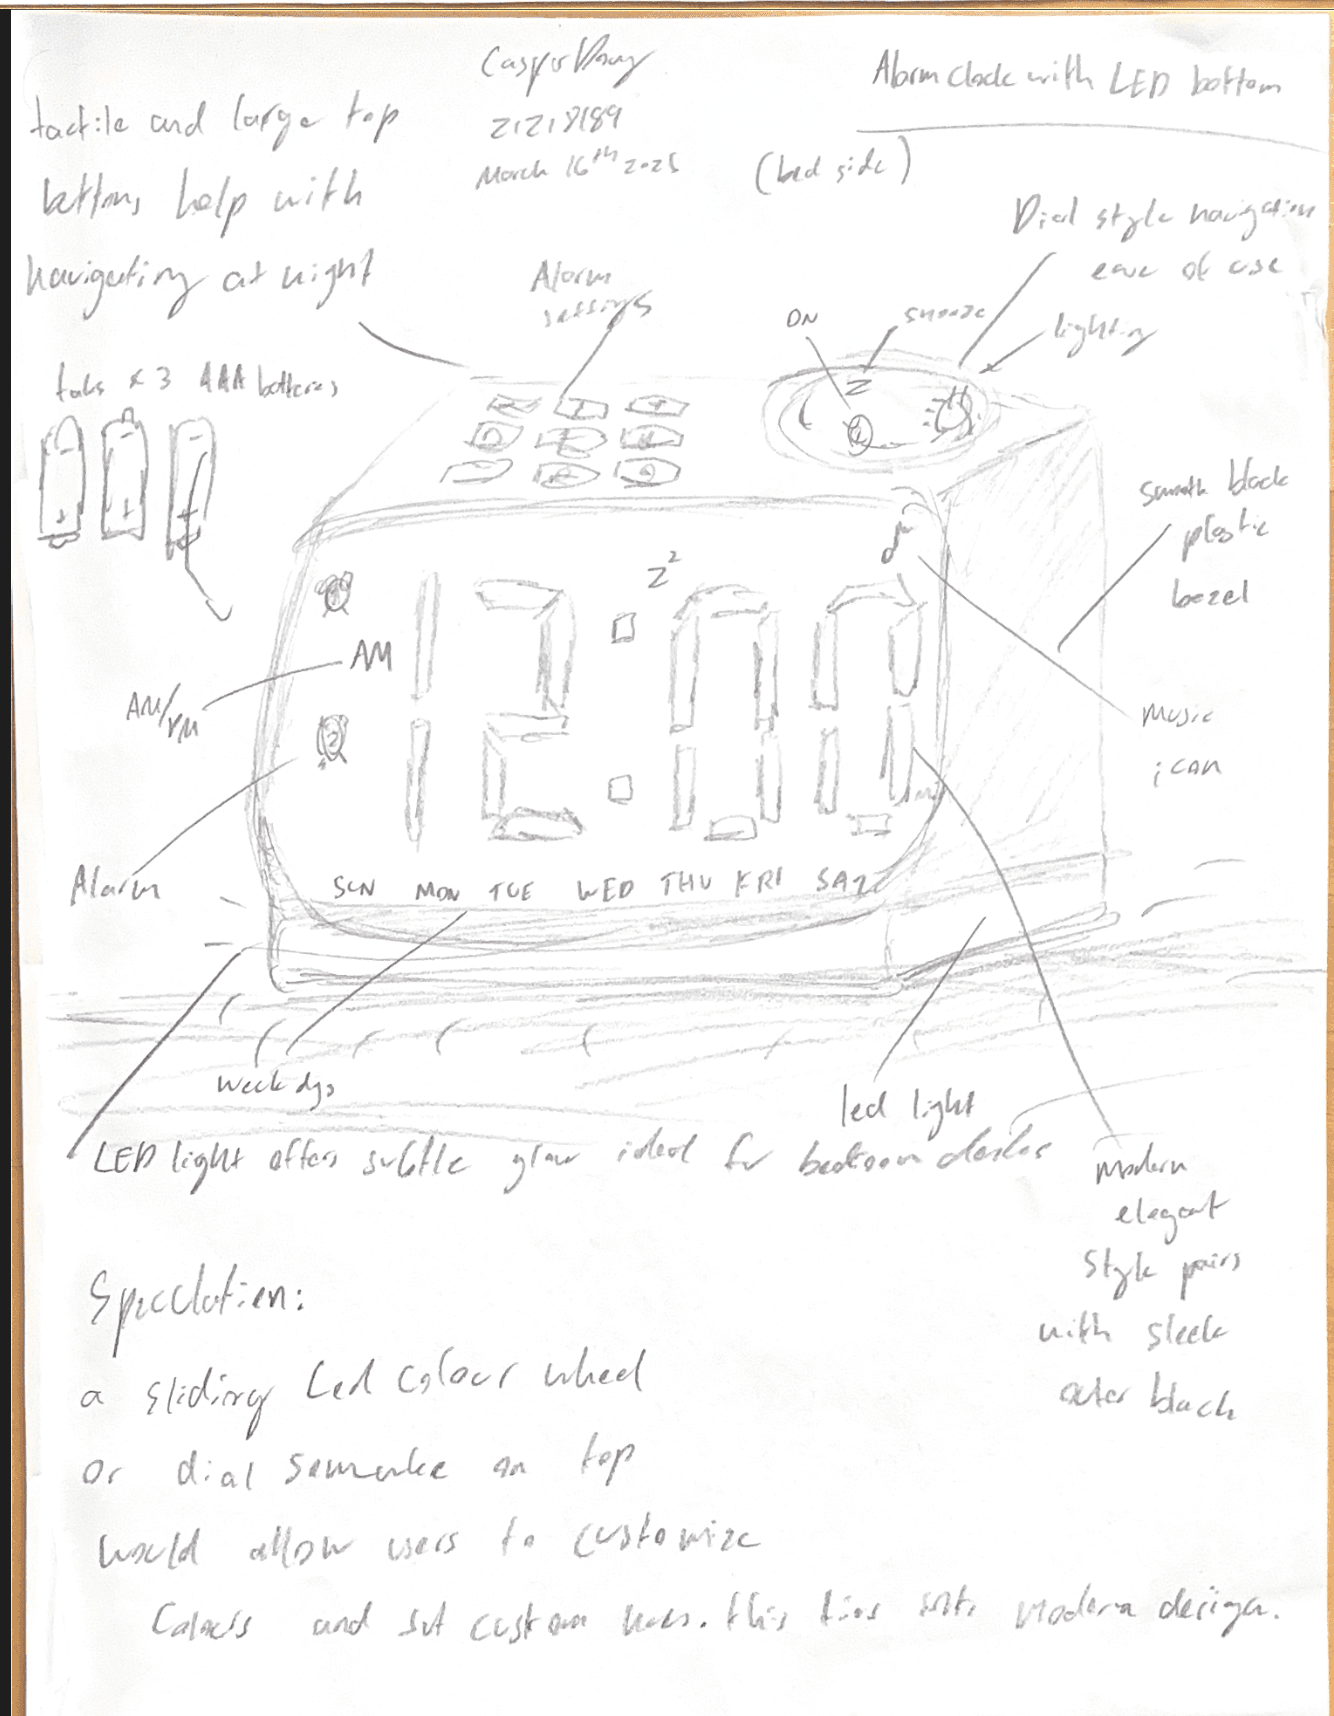 Alarm clock with LED bottom
(bed side)
21218189
March 16th 2025
tactile and large top
buttons help with
navigating at night
Alarm
settings
ON
snooze
Dial style navigation
ease of use
lighting
x 3 AAA batteries
smooth black
plastic
bezel
Z²
AM
AM/PM
Music
ican
Alarm
12:00
SUN MON TUE WED THU FRI SAT
week dys
led light
LED light offers subtle glow ideal for bedroom
Modern
elegant
style pairs
with sleek
outer black
Speculation:
a sliding Led colour wheel
or dial on top
would allow users to customize
Colours and set custom hues. this ties into modern design.